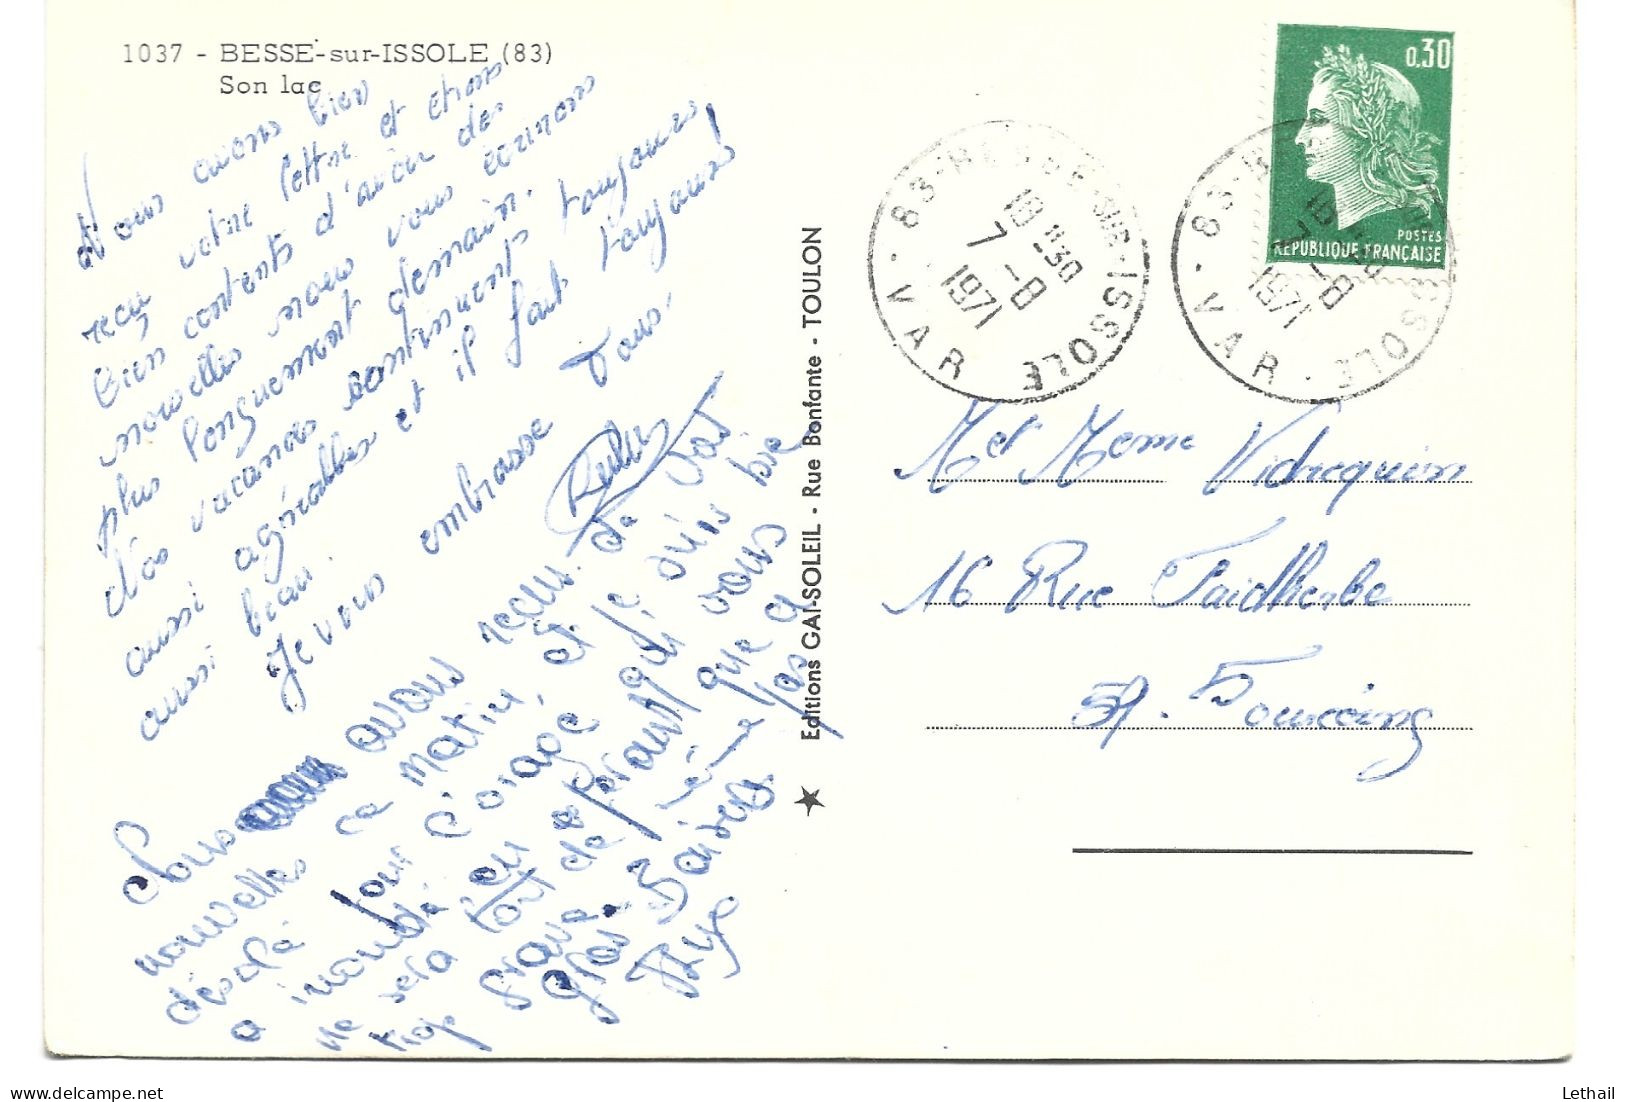 1037 - BESSE-sur-ISSOLE (83)
Son lac
Nous avons bien
reçu votre lettre et étions
bien contents d'avoir des
nouvelles nous vous écrirons
plus longuement demain.
Nos vacances continuent toujours
aussi agréables et il fait toujours
aussi beau.
Je vous embrasse Tous
Nous avons reçu de vos
nouvelles ce matin, et je suis
désolé pour l'orage qui
a inondé
ne sera tout de
trop grave
Gros Baisers
Editions GAI-SOLEIL - Rue Bonfante - TOULON
0,30
POSTES
RÉPUBLIQUE FRANÇAISE
83-BESSE-SUR-ISSOLE
18H30
7-8
1971
VAR
83-BESSE-SUR-ISSOLE
18H30
7-8
1971
VAR
M et Mme
16 Rue Faidherbe
59. Tourcoing
Lethail